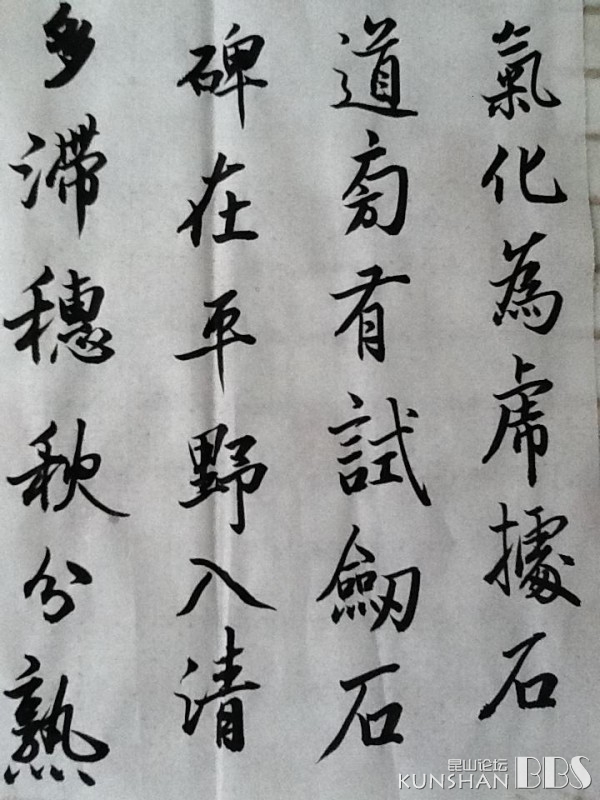 氣化為虎據石
道旁有試劒石
碑在平野入清
多滯穗秋分熟
昆山论坛
KUNSHAN BBS